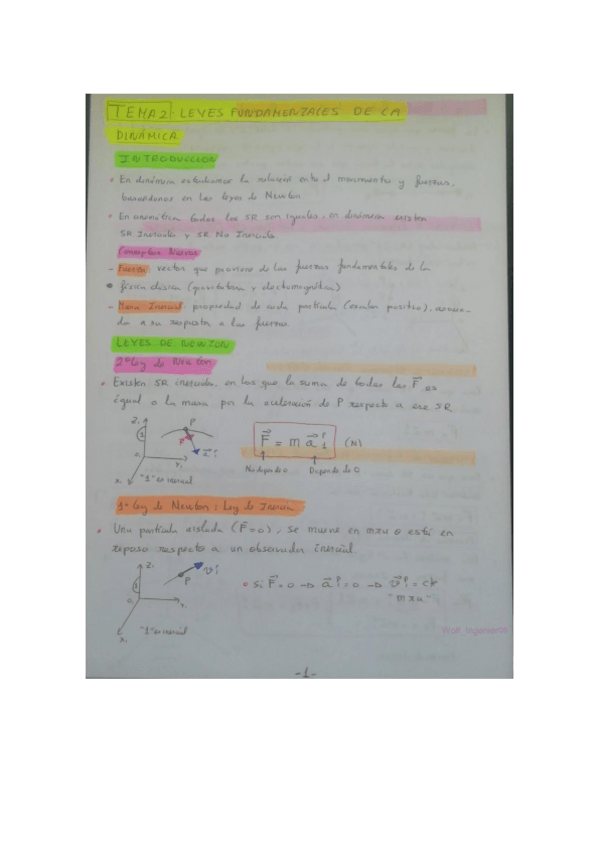 TEMA 2. LEYES FUNDAMENTALES DE LA
DINÁMICA
INTRODUCCIÓN
• En dinámica estudiamos la relación entre el movimiento y fuerzas,
basandonos en las leyes de Newton.
• En cinemática todos los SR son iguales, en dinámica existen
SR Inerciales y SR No Inerciales
Conceptos Nuevos
- Fuerza: vector que proviene de las fuerzas fundamentales de la
física clásica (gravitatoria y electromagnética)
- Masa Inercial: propiedad de cada partícula (escalar positivo),
da a su respuesta a las fuerzas.
LEYES DE NEWTON
2ª Ley de Newton
• Existen SR inerciales en los que la suma de todas las F⃗ es
igual a la masa por la aceleración de P respecto a ese SR
Z₁ P
1
O₁ Y₁
X₁ "1" es inercial
F⃗ = m a⃗ᴾ₁ (N)
No depende Depende de O
1ª Ley de Newton: Ley de Inercia
• Una partícula aislada (F⃗=0), se mueve en mru o está en
reposo respecto a un observador inercial.
Z₁ P
1
O₁ Y₁
X₁ "1" es inercial
• Si F⃗ = 0 → a⃗ᴾ₁ = 0 → v⃗ᴾ₁ = cte
"mru"
Wolf_Ingenieros
-1-